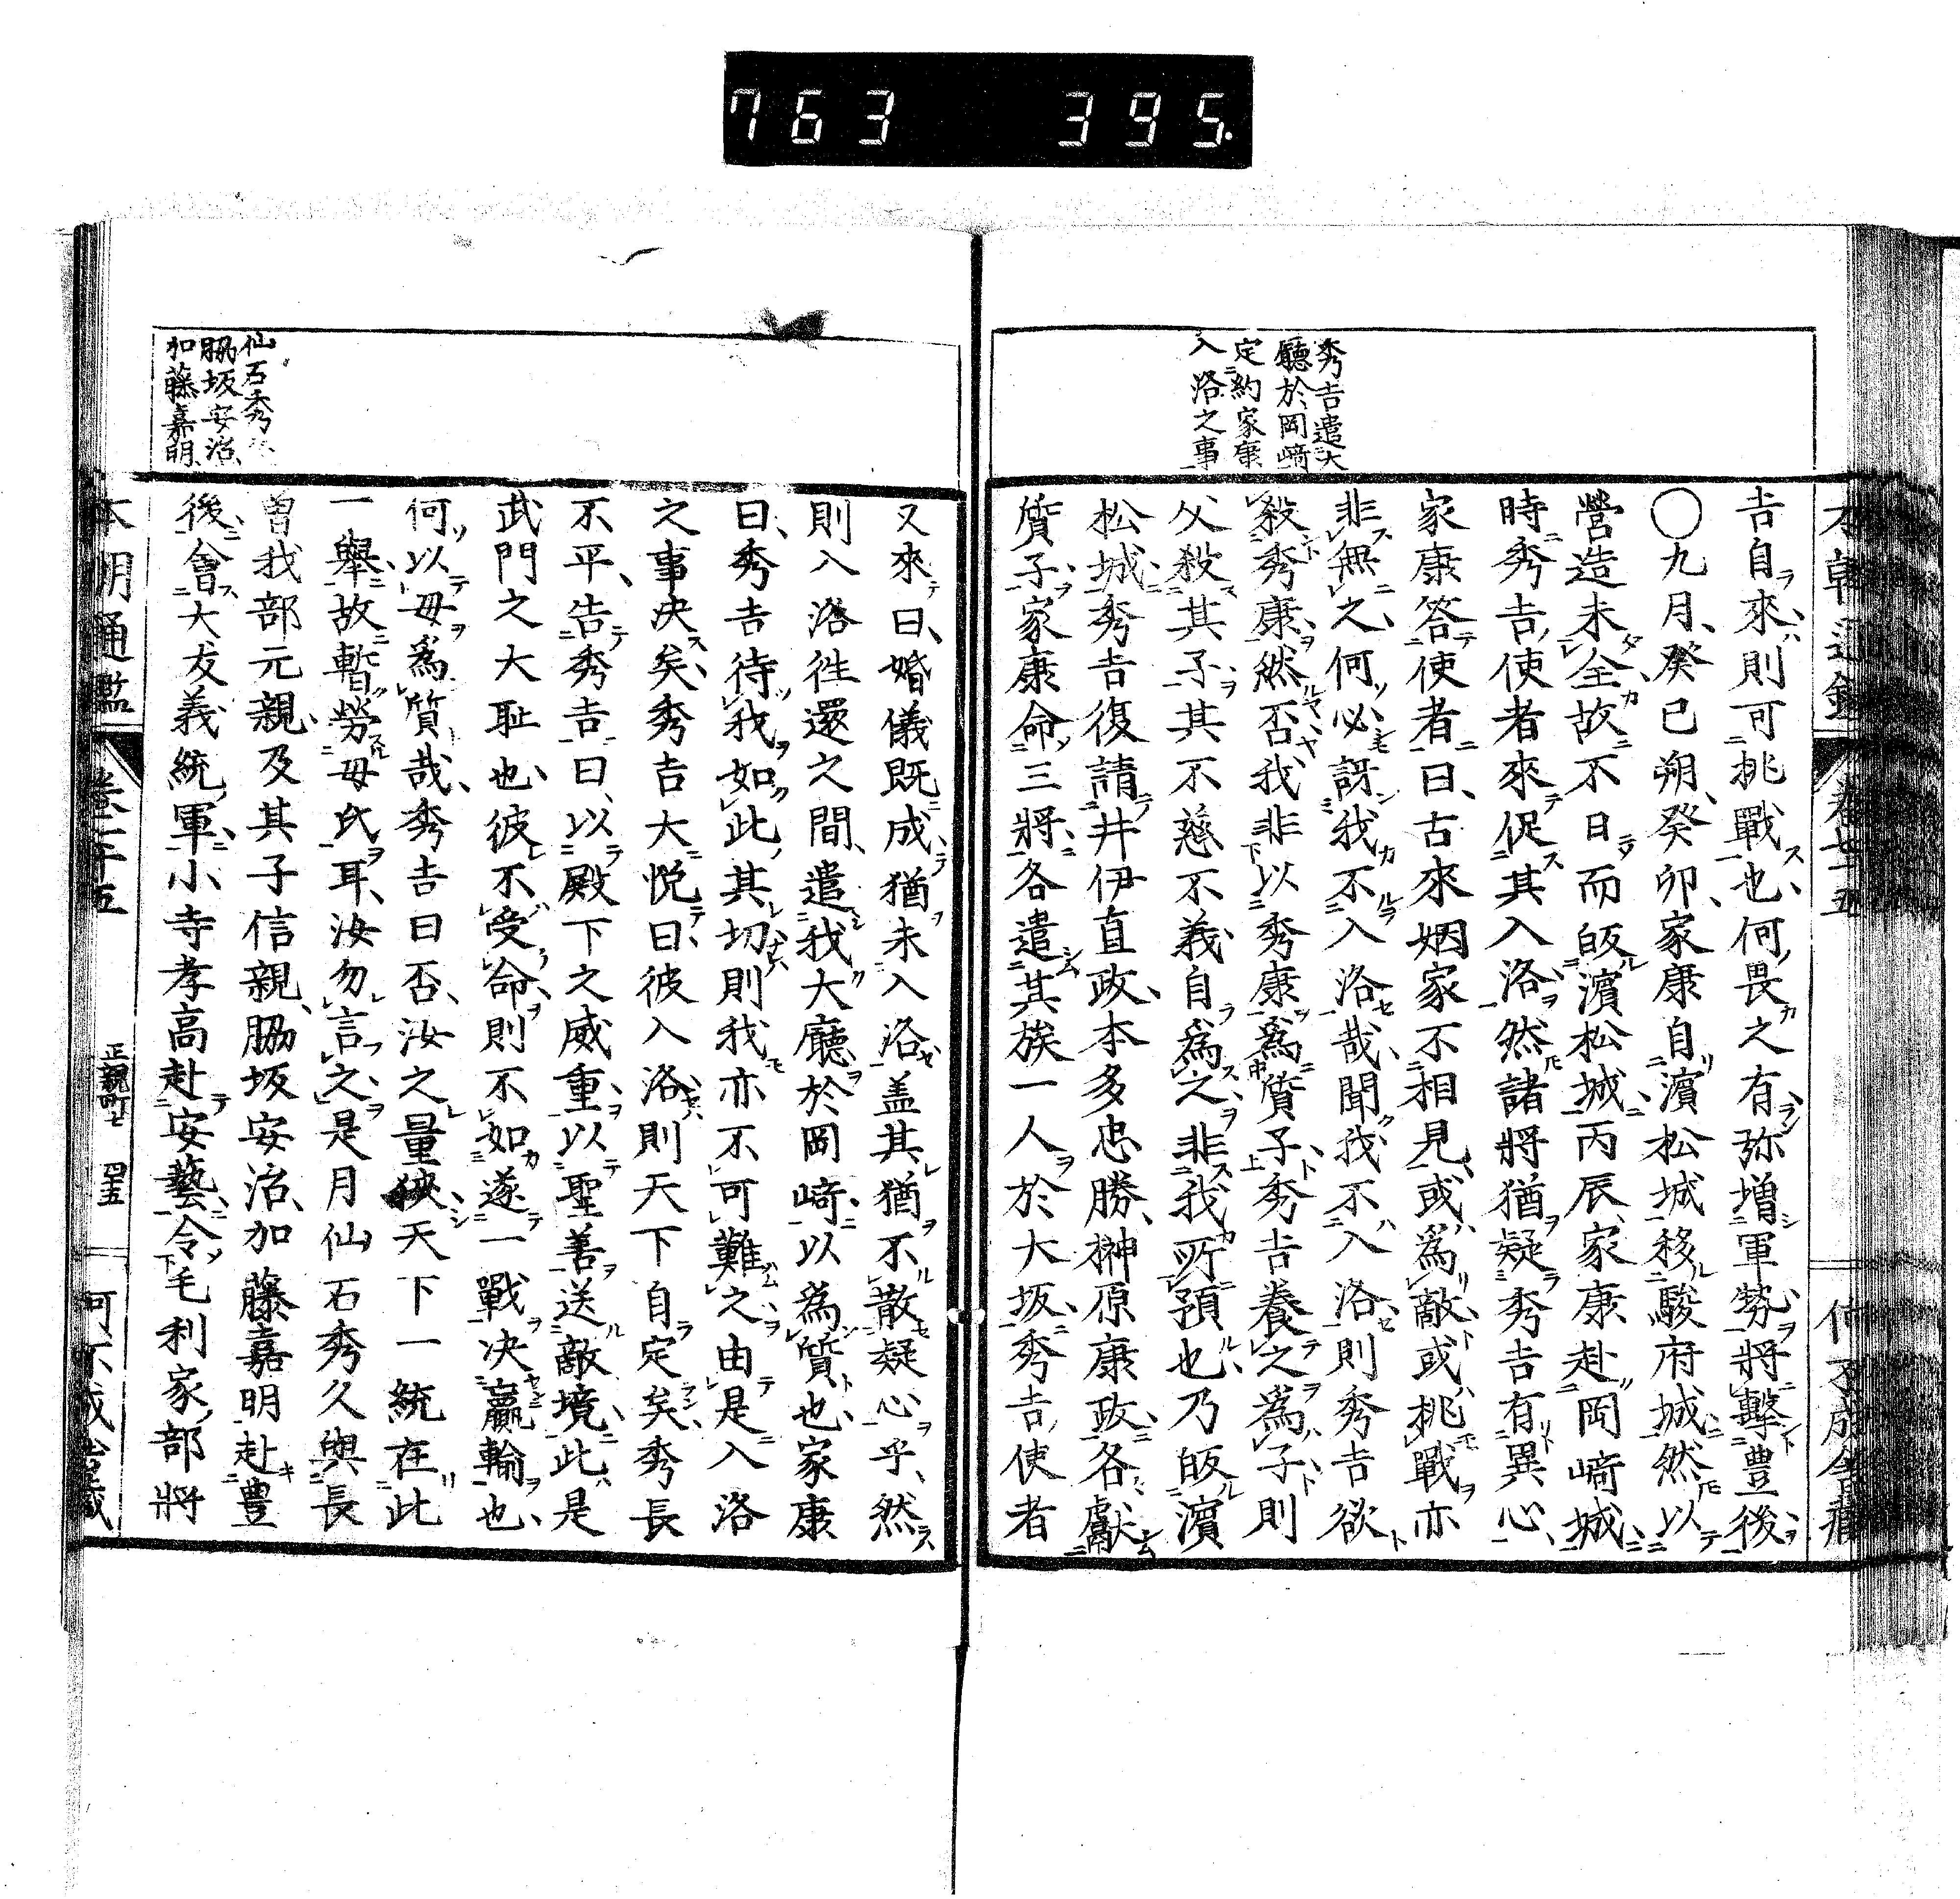 763 395.
秀吉遣大
廳於岡﨑
定約家康
入洛之事
吉自來則可挑戰也何畏之有弥増軍勢將擊豊後
○九月癸巳朔癸卯家康自濵松城移駿府城然以
營造未全故不日而皈濵松城丙辰家康赴岡﨑城
時秀吉使者來促其入洛然諸將猶疑秀吉有異心
家康答使者曰古來姻家不相見或爲敵或挑戰亦
非無之何必訝我不入洛哉聞我不入洛則秀吉欲
殺秀康然否我非以秀康爲質子秀吉養之爲子則
父殺其子其不慈不義自爲之非我所預也乃皈濵
松城秀吉復請井伊直政本多忠勝榊原康政各獻
質子家康命三將各遣其族一人於大坂秀吉使者
仙石秀
脇坂安治
加藤嘉明
又來曰婚儀既成猶未入洛盖其猶不散疑心乎然
則入洛徃還之間遣我大廳於岡﨑以爲質也家康
曰秀吉待我如此其切則我亦不可難之由是入洛
之事决矣秀吉大悦曰彼入洛則天下自定矣秀長
不平告秀吉曰以殿下之威重以聖善送敵境此是
武門之大耻也彼不受命則不如遂一戰决贏輸也
何以母爲質哉秀吉曰否汝之量狹天下一統在此
一舉故暫勞母氏耳汝勿言之是月仙石秀久與長
曽我部元親及其子信親脇坂安治加藤嘉明赴豊
後會大友義統軍小寺孝高赴安藝令毛利家部將
本朝通鑑 卷二十五 正親町七 四十五